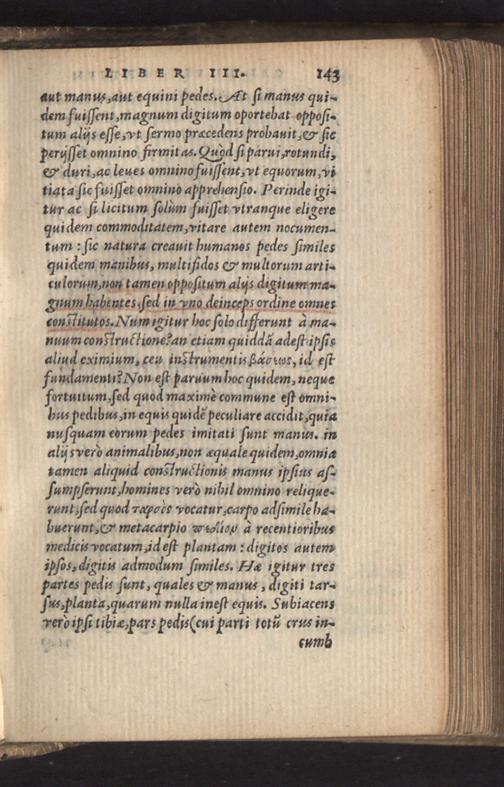 LIBER III. 143
aut manus, aut equini pedes. At si manus qui-
dem fuissent, magnum digitum oportebat opposi-
tum alijs esse, vt sermo præcedens probauit, & sic
perijsset omnino firmitas. Quòd si parui, rotundi,
& duri, ac leues omnino fuissent, vt equorum, vi-
tiata sic fuisset omnino apprehensio. Perinde igi-
tur ac si licitum solùm fuisset vtranque eligere
quidem commoditatem, vitare autem nocumen-
tum : sic natura creauit humanos pedes similes
quidem manibus, multifidos & multorum arti-
culorum, non tamen oppositum alijs digitum ma-
gnum habentes, sed in vno deinceps ordine omnes
constitutos. Num igitur hoc solo differunt à ma-
nuum constructione? an etiam quiddã adest ipsis
aliud eximium, ceu instrumentis βάσεως, id est
fundamenti? Non est paruum hoc quidem, neque
fortuitum, sed quod maximè commune est omni-
bus pedibus, in equis quidẽ peculiare accidit, quia
nusquam eorum pedes imitati sunt manus. in
alijs verò animalibus, non æquale quidem, omnia
tamen aliquid constructionis manus ipsius as-
sumpserunt, homines verò nihil omnino relique-
runt, sed quod ταρσὸς vocatur, carpo adsimile ha-
buerunt, & metacarpio πεδίον à recentioribus
medicis vocatum, id est plantam : digitos autem
ipsos, digitis admodum similes. Hæ igitur tres
partes pedis sunt, quales & manus, digiti tar-
sus, planta, quarum nulla inest equis. Subiacens
verò ipsi tibiæ, pars pedis (cui parti totũ crus in-
cumb